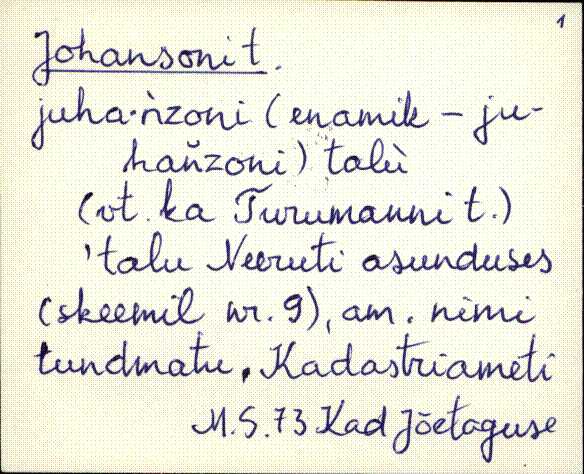 1
Johansoni t.
juha·ǹzoni (enamik – ju-
han̆zoni) talù
(vt. ka Turumanni t.)
'talu Neeruti asunduses
(skeemil nr. 9), am. nimi
tundmatu, Kadastriameti
M.S. 73 Kad Jõetaguse